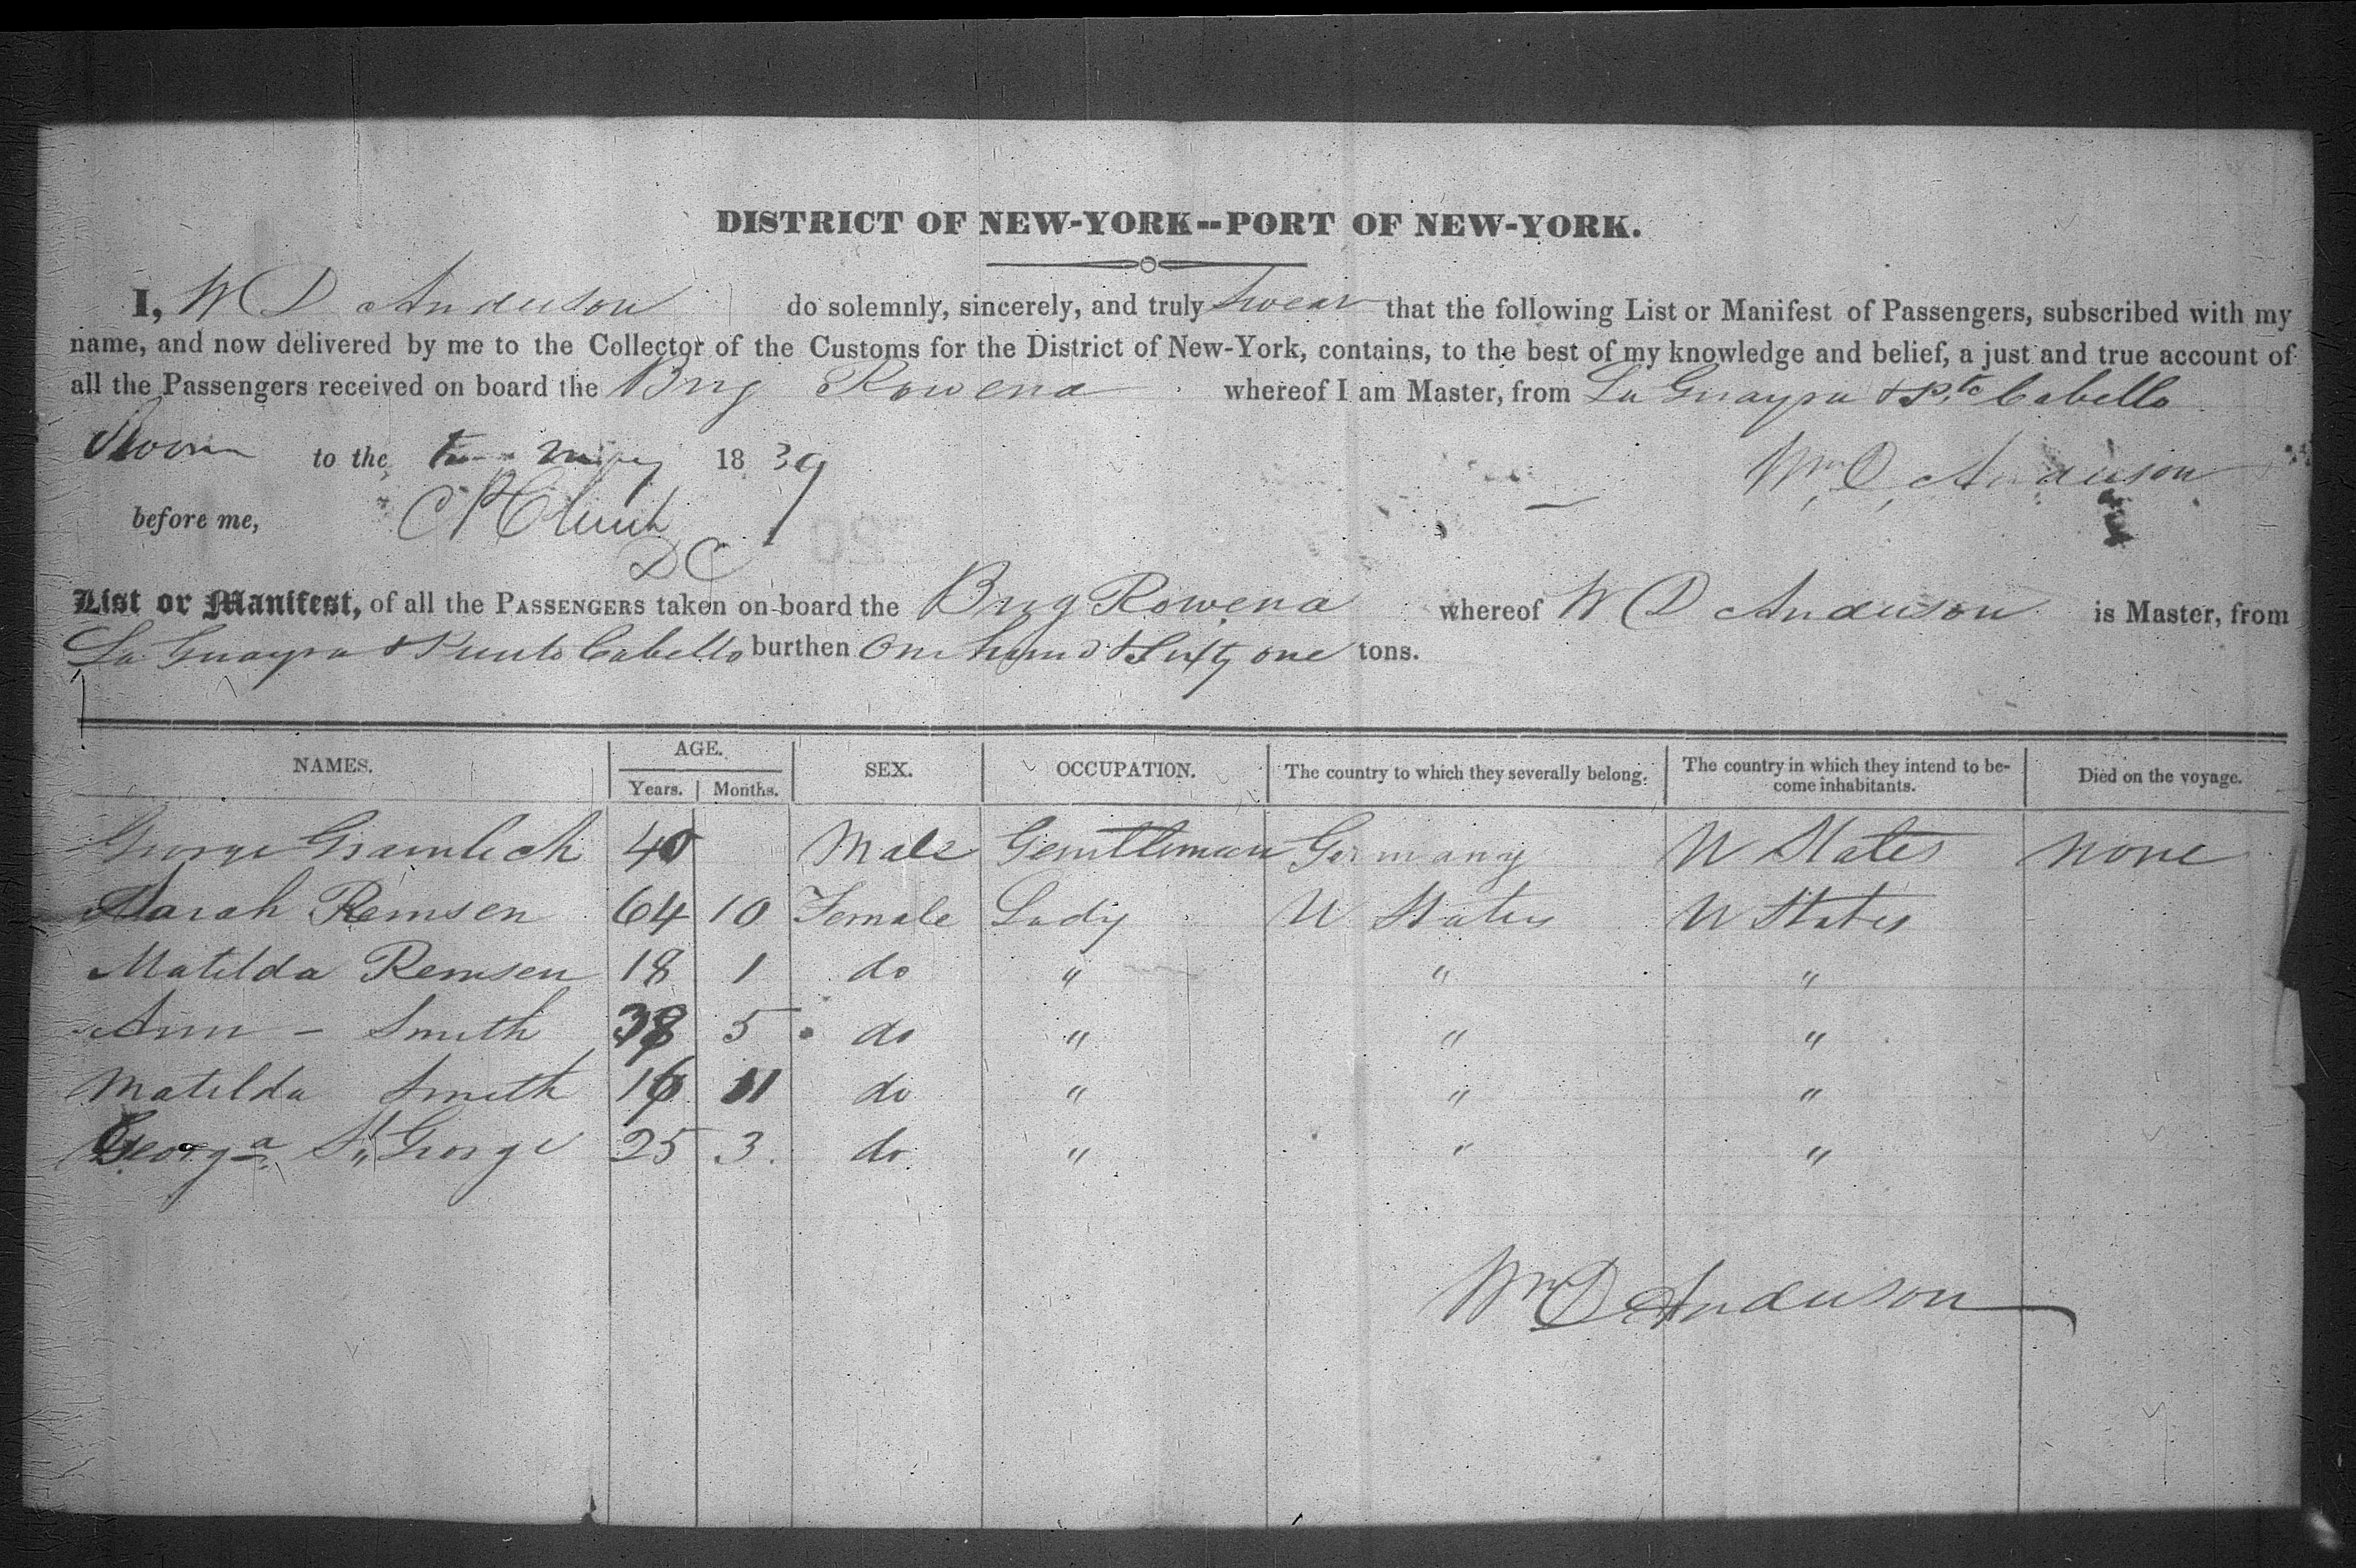 DISTRICT OF NEW-YORK--PORT OF NEW-YORK.
I, W D Anderson do solemnly, sincerely, and truly swear that the following List or Manifest of Passengers, subscribed with my
name, and now delivered by me to the Collector of the Customs for the District of New-York, contains, to the best of my knowledge and belief, a just and true account of
all the Passengers received on board the Brig Rowena whereof I am Master, from La Guayra & Pto Cabello
Sworn to the May 1839 Wm D. Anderson
before me,
DC
List or Manifest, of all the PASSENGERS taken on board the Brig Rowena whereof W D Anderson is Master, from
La Guayra & Puerto Cabello burthen One hund & Sixty one tons.
NAMES. AGE. Years. Months. SEX. OCCUPATION. The country to which they severally belong. The country in which they intend to become inhabitants. Died on the voyage.
George Gramlich 40 Male Gentleman Germany U States None
Sarah Remsen 64 10 Female Lady U States U States
Matilda Remsen 18 1 do " " "
Ann - Smith 38 5 do " " "
Matilda Smith 16 11 do " " "
Georga St George 25 3 do " " "
Wm D Anderson